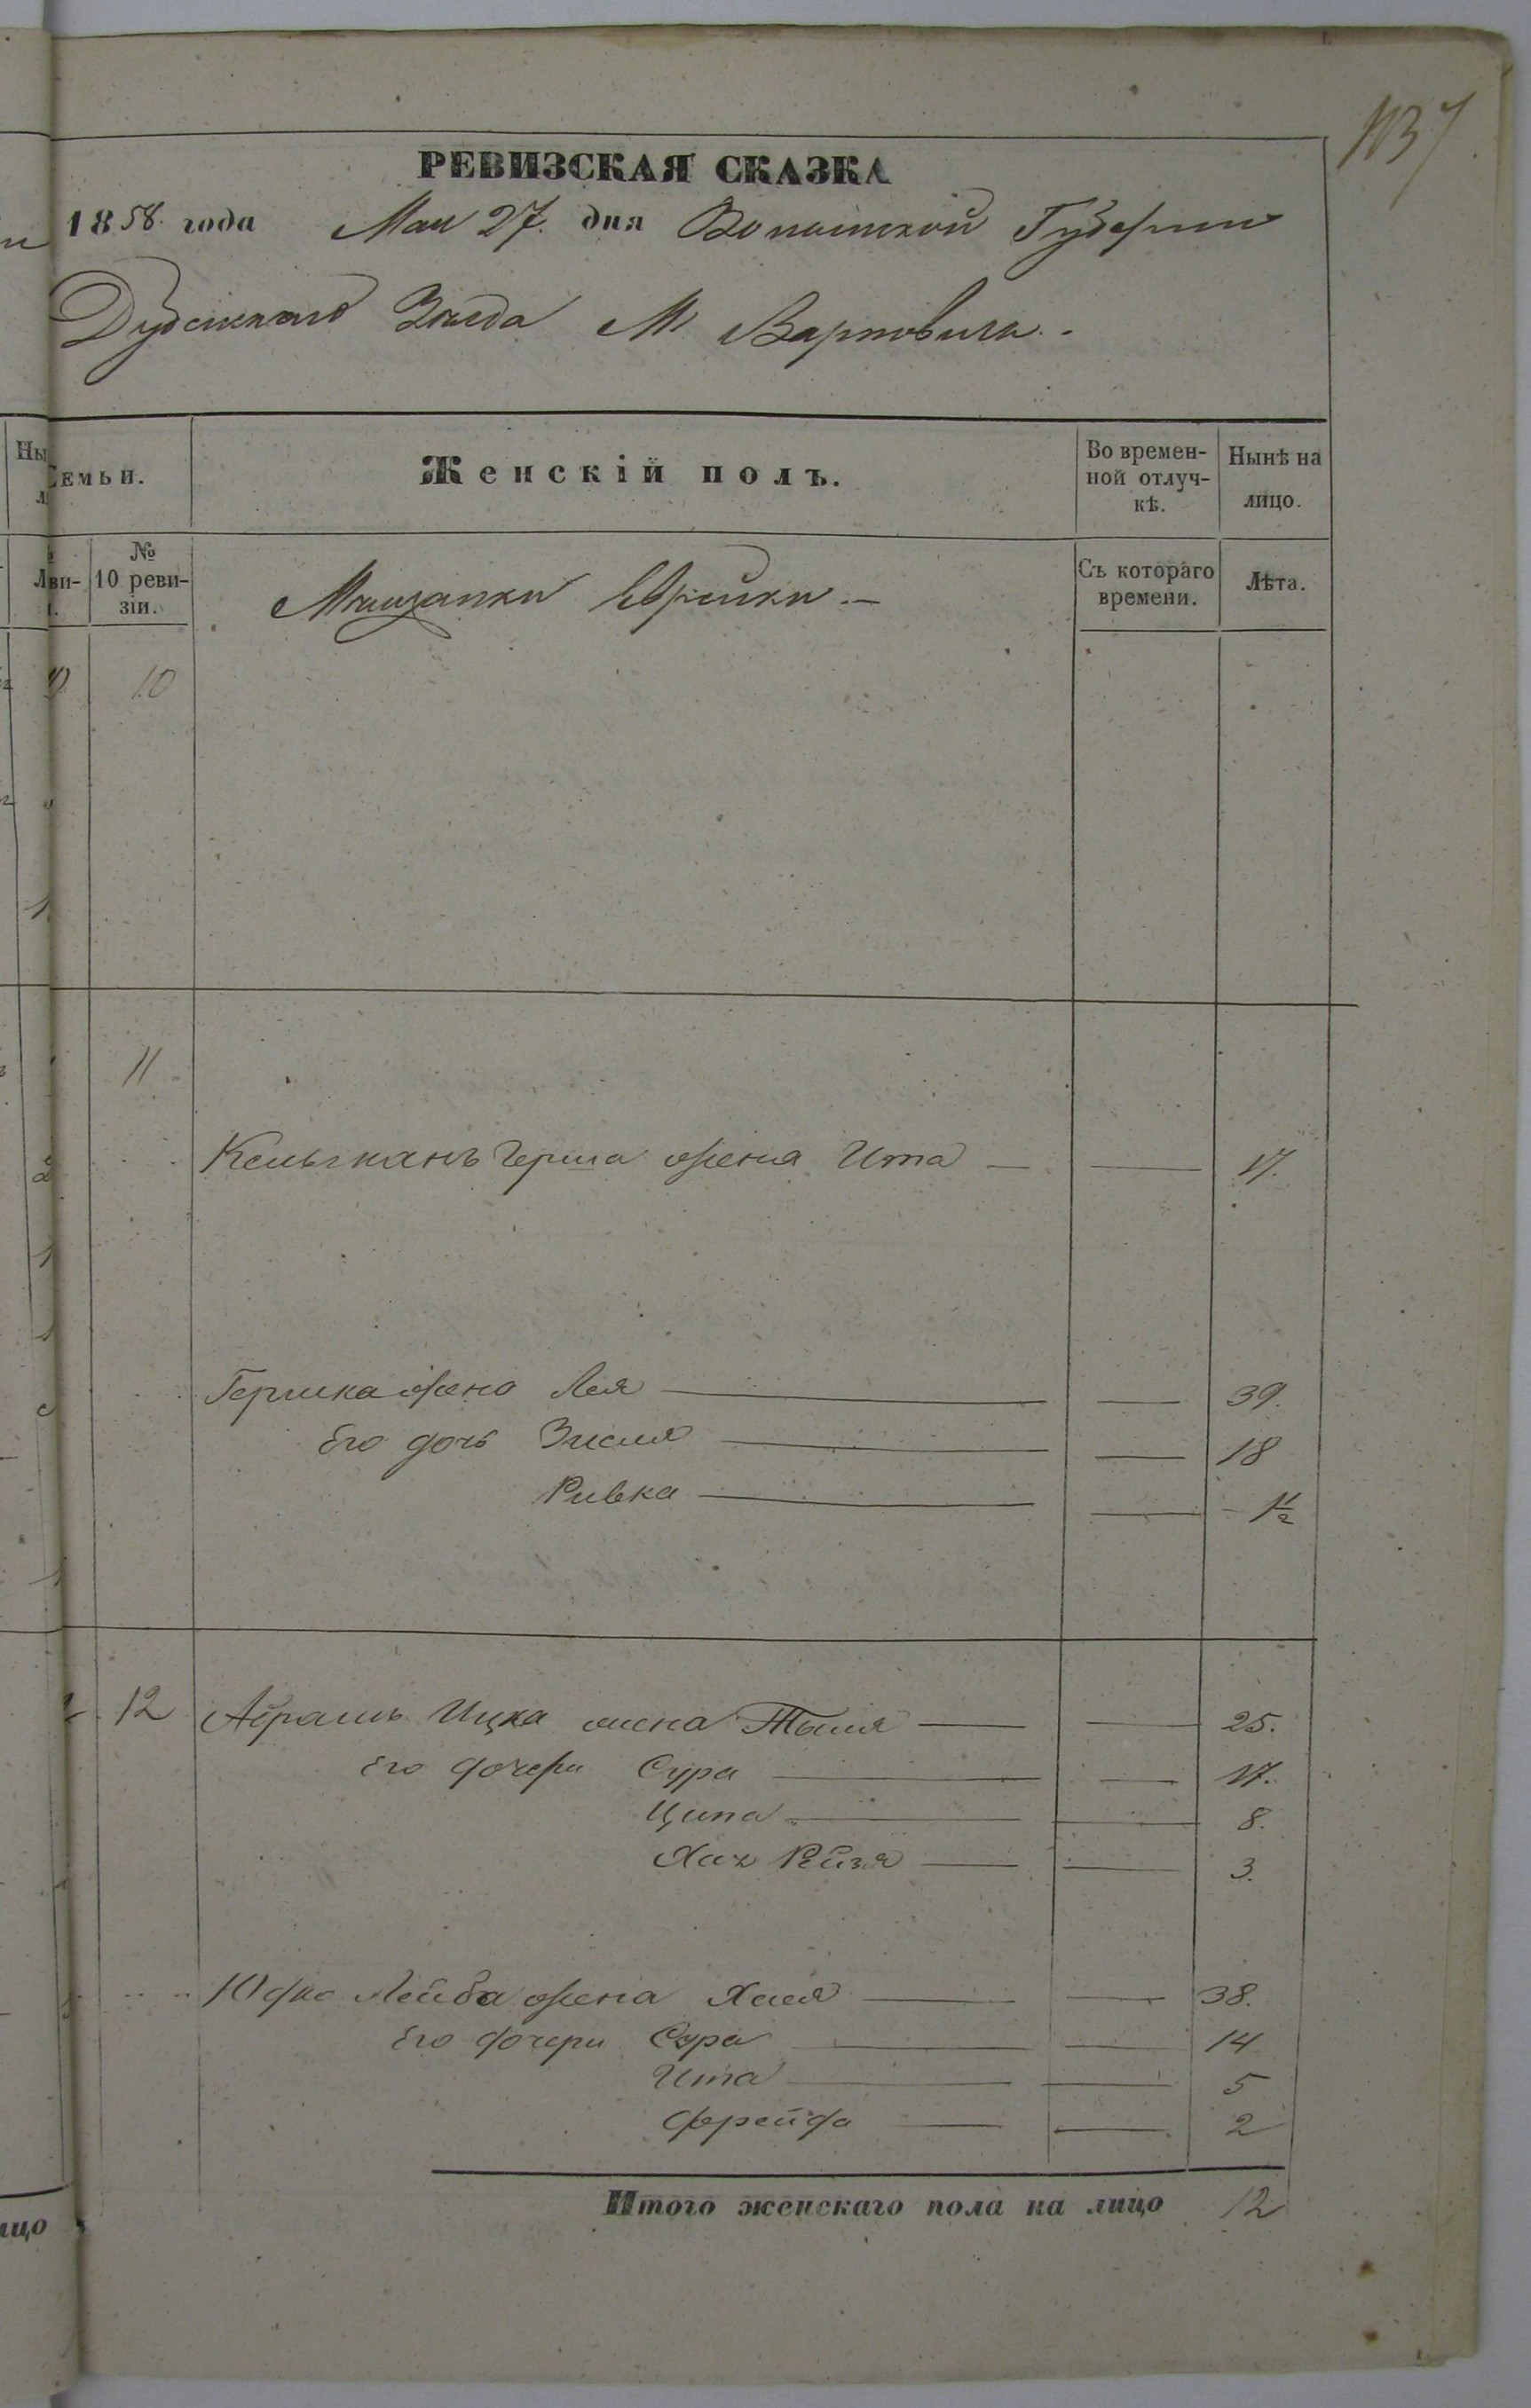 1137
РЕВИЗСКАЯ СКАЗКА
1858 года Мая 27 дня Волынской Губернии
Дубенскаго Уезда М Варковичъ
Семьи.
Женскій полъ.
Во времен-
ной отлуч-
кѣ.
Нынѣ на
лицо.
№
10 реви-
зіи.
Мещанки Еврейки
Съ котораго
времени.
Лѣта.
10
11
Герша жена Ита 17.
Гершка жена Лея 39.
Его дочь Зисля 18
Ривка 1 1/2
12 Абрамъ Ицка жена 25.
Его дочери Сура 17.
Ципа 8.
Хая Рейзя 3.
Юдко Лейба жена Хая 38.
Его дочери Сура 14
Ита 5
Фрейда 2
Итого женскаго пола на лицо 12
ицо